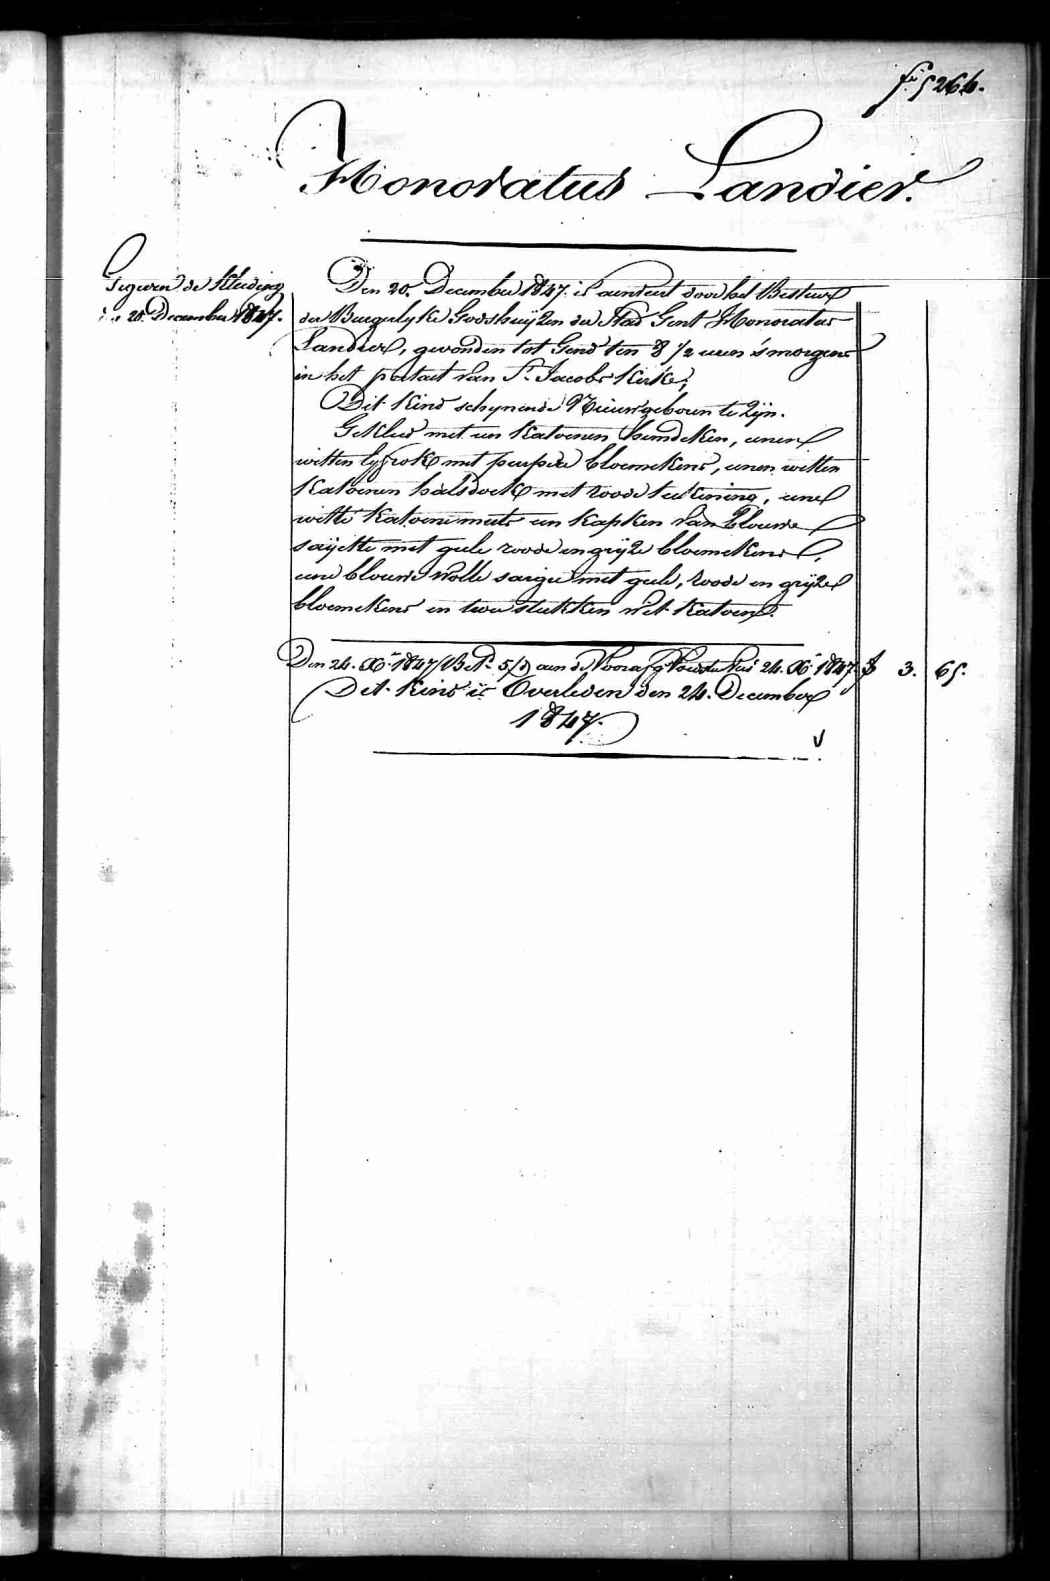 f° 5264.
Honoratus Landier.
Gegeven de Kleding
20. December 1847.
Den 20. December 1847. is aenveird door het Bestuer
der Burgerlyke Godshuijzen der Stad Gent Honoratus
Landier, gevonden tot Gend ten 8 1/2 uren 's morgens
in het portael van St. Jacobs Kerke;
Dit Kind schynende Nieuwgeboren te zijn.
Gekleed met een Katoenen hemdeken, eenen
witten lyfrok met purpere bloemekens, eenen witten
Katoenen halsdoek met roode teekening, eene
witte Katoene muts een Kapken van blauwe
saijette met gele roode en grijze bloemekens,
eene blauwe wolle sargie met gele, roode en grijze
bloemekens en twee stukken wit Katoen.
Den 24. Xb. 1847 Bet. 5/d aen de Voorafg 24. Xb. 1847. f 3. 65.
Dit Kind is Overleden den 24. December
1847.